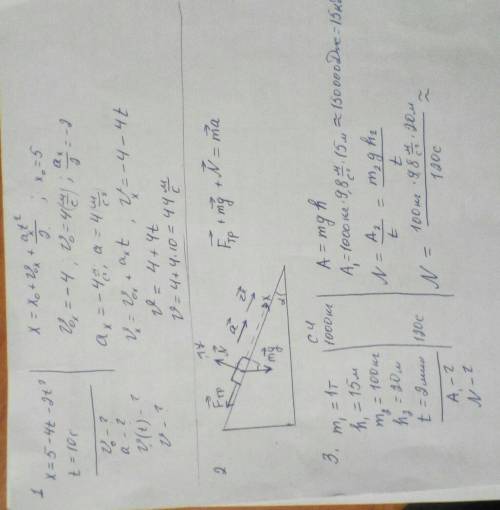 1
x = 5 - 4t - 2t²
t = 10c
v₀ - ?
a - ?
v(t) - ?
v - ?
x = x₀ + v₀ₓt + aₓt²/2 ; x₀ = 5
v₀ₓ = -4, v₀ = 4(м/с) ; aₓ/2 = -2
aₓ = -4 м/с², a = 4 м/с²
vₓ = v₀ₓ + aₓt , vₓ = -4 - 4t
v = 4 + 4t
v = 4 + 4·10 = 44 м/с
2
F⃗тр
N⃗
a⃗
v⃗
mg⃗
x
α
F⃗тр + mg⃗ + N⃗ = ma⃗
3. m₁ = 1т
h₁ = 15м
m₂ = 100кг
h₂ = 20м
t = 2мин
A₁ - ?
N - ?
СИ
1000кг
120с
A = mgh
A₁ = 1000кг · 9,8 м/с² · 15м ≈ 150000Дж = 15
N = A₂/t = m₂gh₂/t
N = 100кг · 9,8 м/с² · 20м / 120с ≈